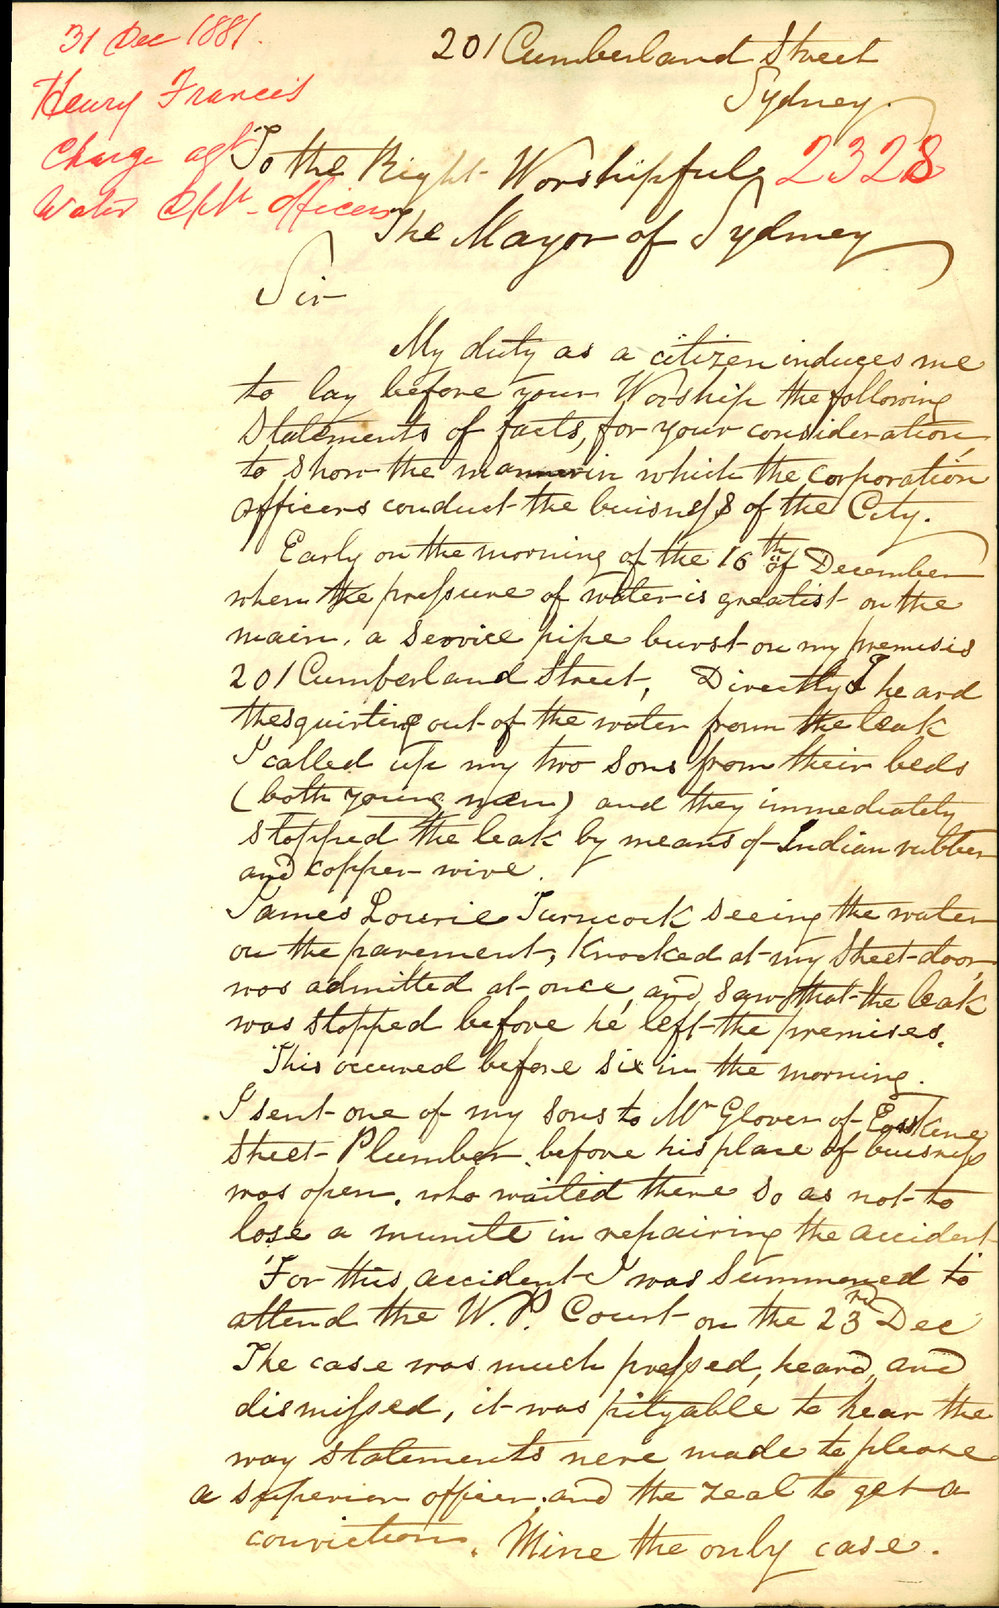 31 Dec 1881.
Henry Francis
Charge agt
Water Dpt. Officers
2328
201 Cumberland Street
Sydney.
To the Right Worshipful
The Mayor of Sydney
Sir
My duty as a citizen induces me
to lay before your Worship the following
Statements of facts, for your consideration
to show the manner in which the corporation
officers conduct the buisness of the City.
Early on the morning of the 16th of December
when the pressure of water is greatest on the
main, a service pipe burst on my premisis
201 Cumberland Street, Directly I heard
the squirting out of the water from the leak
I called up my two sons from their beds
(both young men) and they immediately
stopped the leak by means of Indian rubber
and copper wire.
James Lowrie Turncock seeing the water
on the pavement, knocked at my street door,
was admitted at once, and saw that the leak
was stopped before he left the premises.
This occured before six in the morning.
I sent one of my sons to Mr Glover of Erskine
Street Plumber, before his place of buisness
was open, who waited there so as not to
lose a munite in repairing the accident
For this accident I was Summoned to
attend the W. P. Court on the 23rd Dec
The case was much pressed, heard, and
dismissed, it was pityable to hear the
way statements were made to please
a superior officer, and the zeal to get a
conviction. Mine the only case.